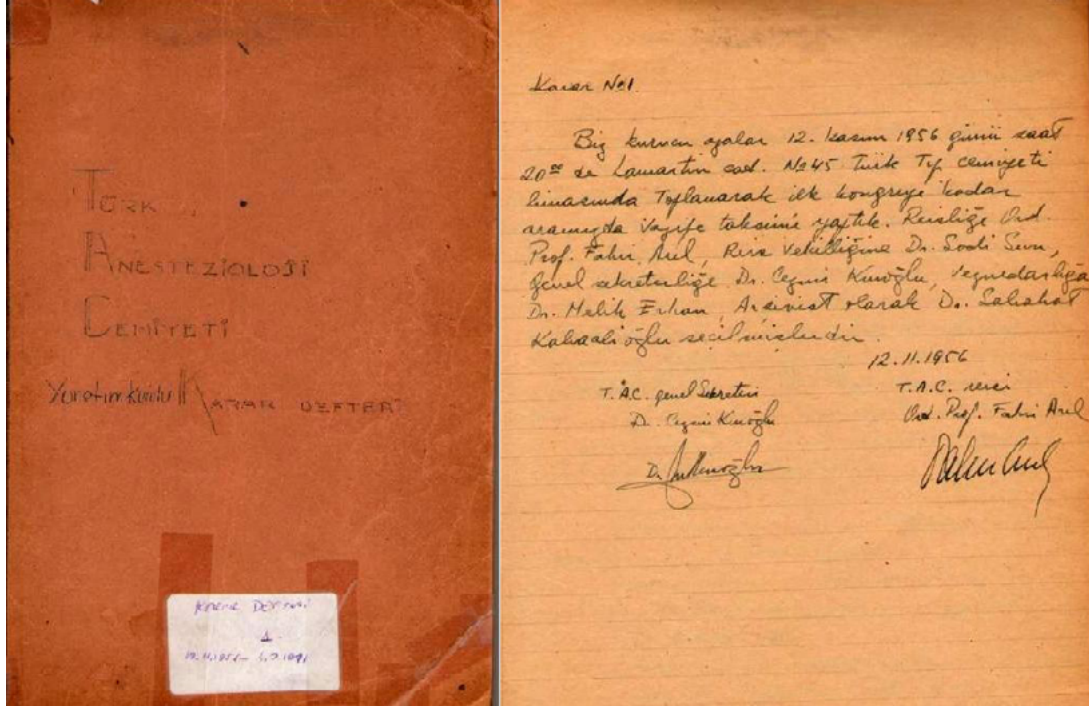 TÜRK
ANESTEZİOLOJİ
CEMİYETİ
Yönetim Kurulu KARAR DEFTERİ
KARAR DEFTERİ
1
Karar No 1
Biz kurucu azalar 12. kasım 1956 günü saat
20⁰⁰ de Lamartin cad. No 45 Türk Tıp cemiyeti
binasında Toplanarak ilk kongreye kadar
aramızda Vazife taksimi yaptık. Reisliğe Ord.
Prof. Fahri Arel, Reis Vekilliğine Dr. Sadi Sun,
genel sekreterliğe Dr. Cezmi Kınoğlu, veznedarlığa
Dr. Melik Erhan, Arşivist olarak Dr. Sabahat
Kabaalioğlu seçilmişlerdir.
12.11.1956
T.A.C. genel Sekreteri
Dr. Cezmi Kınoğlu
T.A.C. reisi
Ord. Prof. Fahri Arel